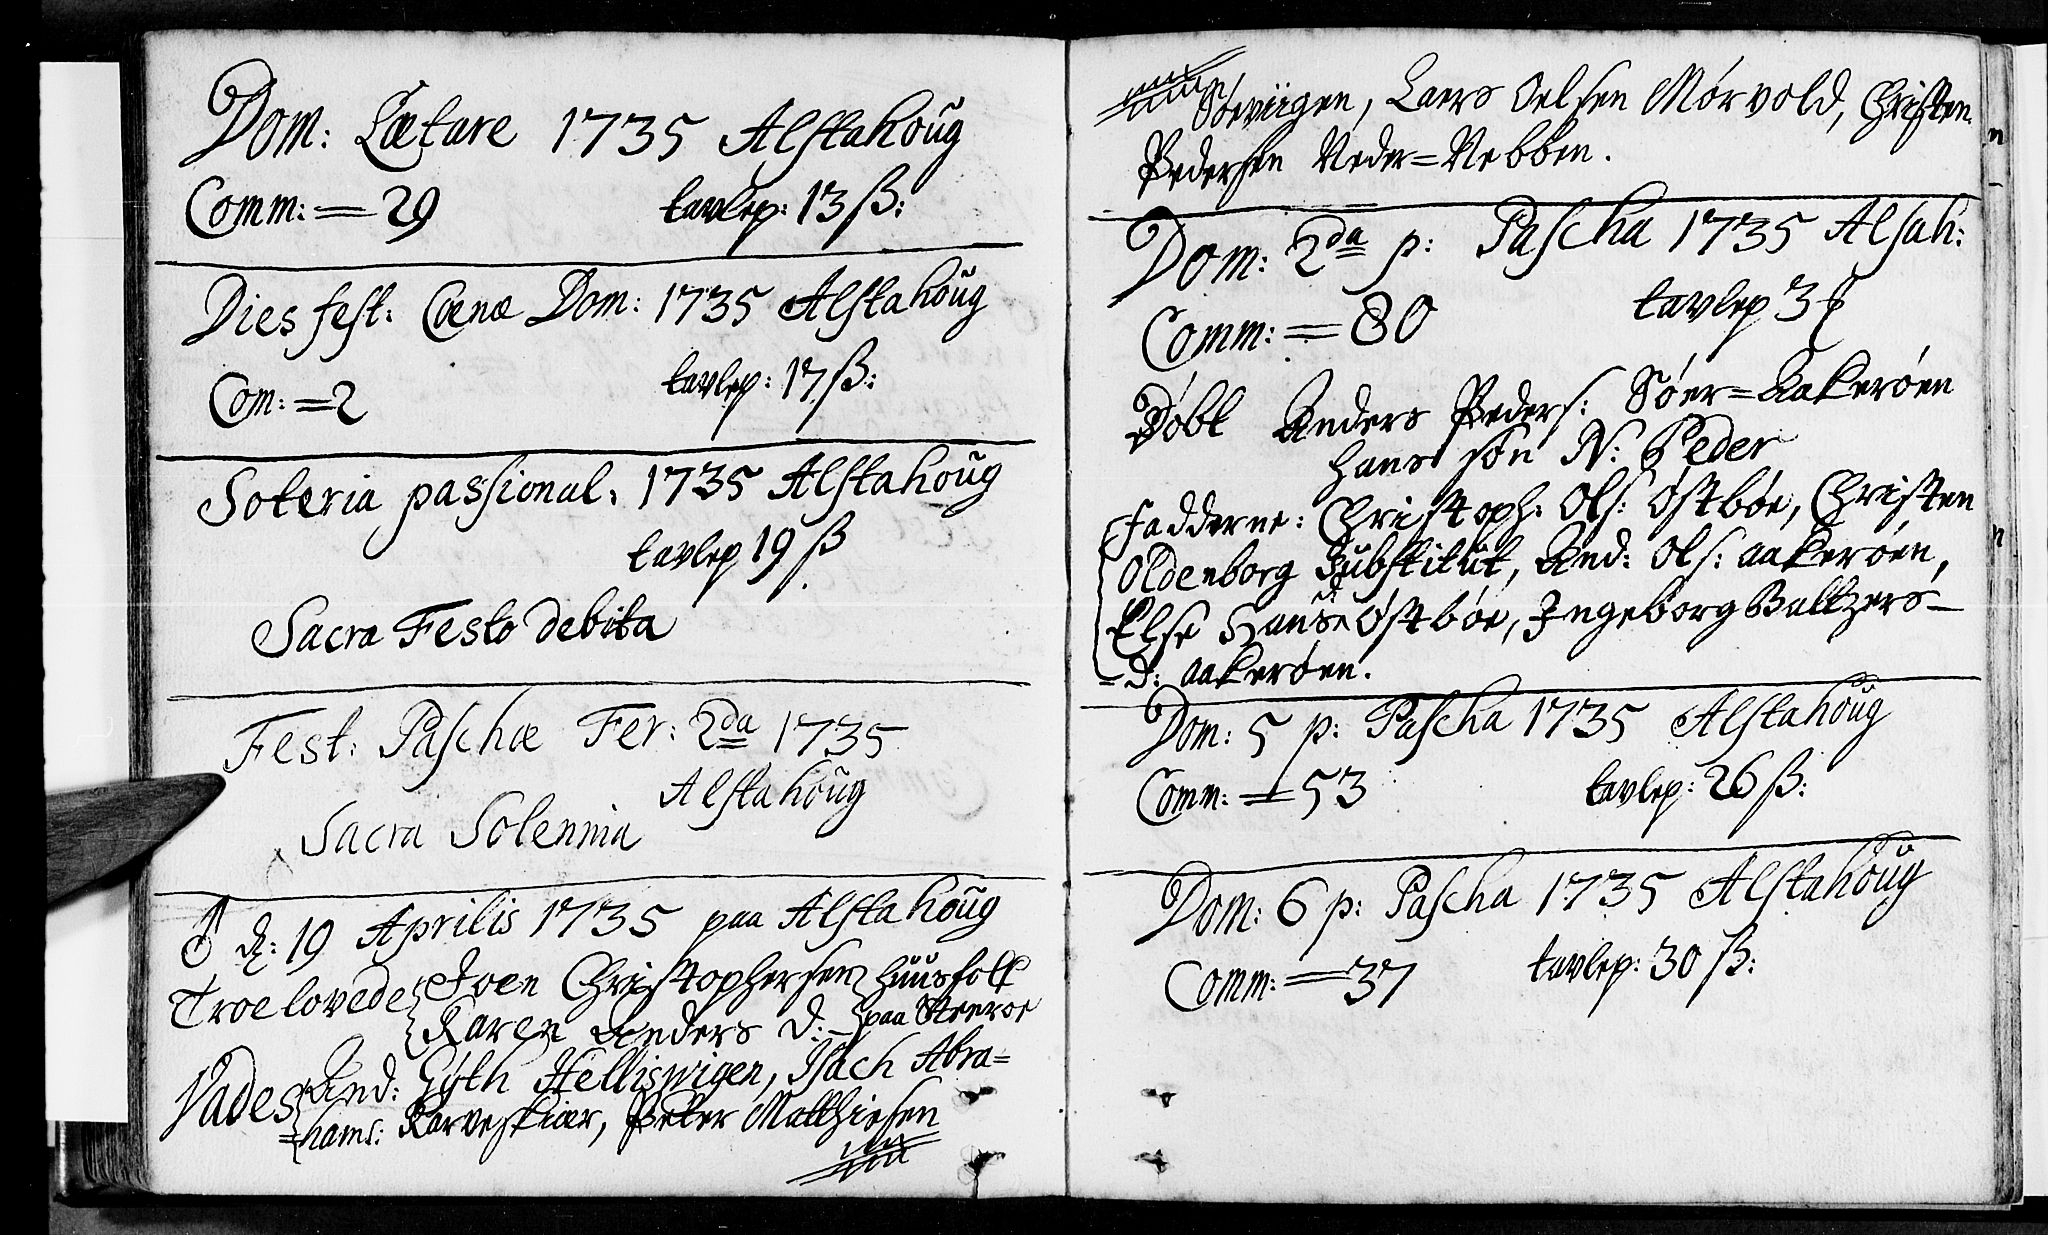 Dom: Lætare 1735 Alstahoŭg
Comm: = 29 tavlep: 13 ß:
Dies fest: Coenæ Dom: 1735 Alstahoŭg
Com: = 2 tavlep: 17 ß:
Soteria passional: 1735 Alstahoŭg
tavlep 19 ß
Sacra Festo debita
Fest: Paschæ Fer: 2da 1735
Alstahoŭg
Sacra Solennia
♂ d: 19 Aprilis 1735 paa Alstahoŭg
Troelovede Joen Christophersen hŭŭsfolk
Karen Anders D: paa Steeroe
Vades And: Gÿth Hellisvigen, Isach Abra=
=hams: Karveskiær, Peter Matthiesen
Søeviigen, Laers Oelsen Mørvold, Christen
Pedersen Neder=Nebben.
Dom: 2da p: Pascha 1735 Alsah:
Comm: = 80 tavlep 3
Døbt Anders Peders: Søer=Aakerøen
hans søn N: Peder
Fadderne: Christoph: Ols: Østbøe, Christen
Oldenborg Substitŭt, And: Ols: Aakerøen,
Else Hansd Østbøe, Ingeborg Baltzers-
=d: Aakerøen.
Dom: 5 p: Pascha 1735 Alstahoŭg
Comm: = 53 tavlep: 26 ß:
Dom: 6 p: Pascha 1735 Alstahoŭg
Comm: = 37 tavlep: 30 ß: